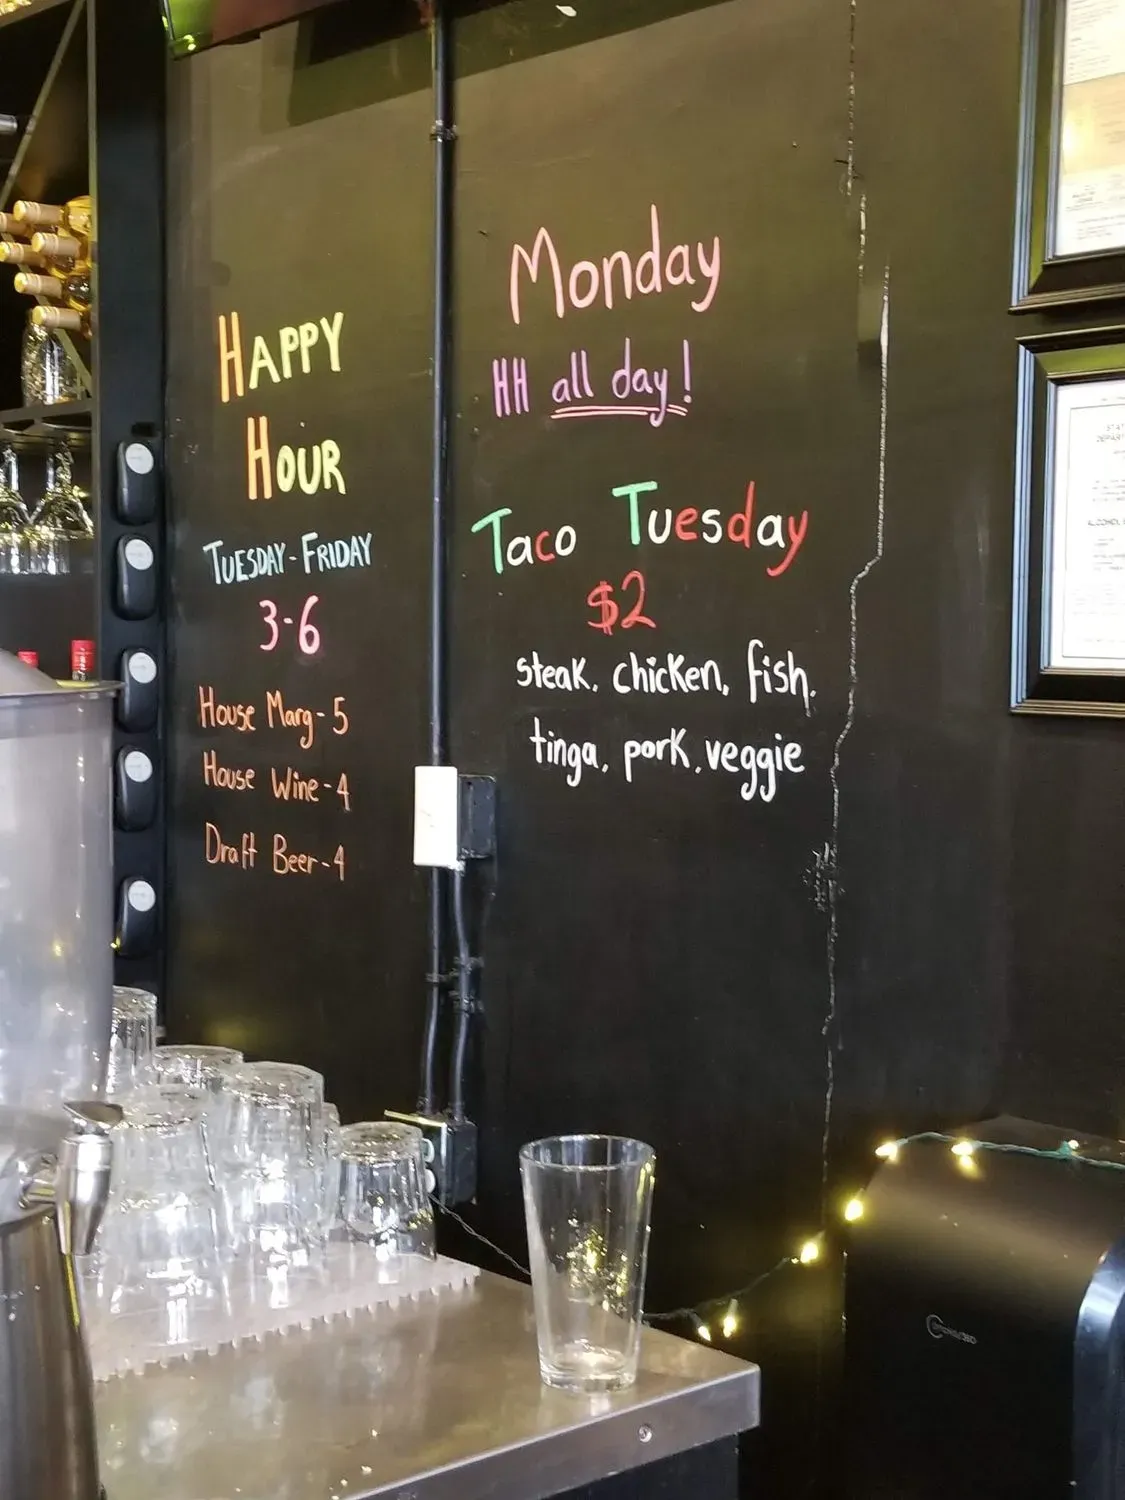 HAPPY
HOUR
TUESDAY-FRIDAY
3-6
House Marg-5
House Wine-4
Draft Beer-4
Monday
HH all day!
Taco Tuesday
$2
steak, chicken, fish,
tinga, pork, veggie